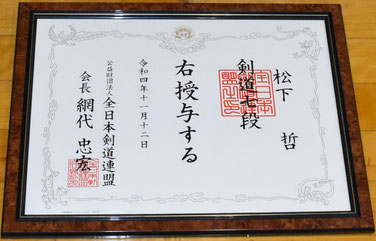 松下 哲
剣道七段
右授与する
令和四年十一月十二日
公益財団法人 全日本剣道連盟
会長 網代忠宏